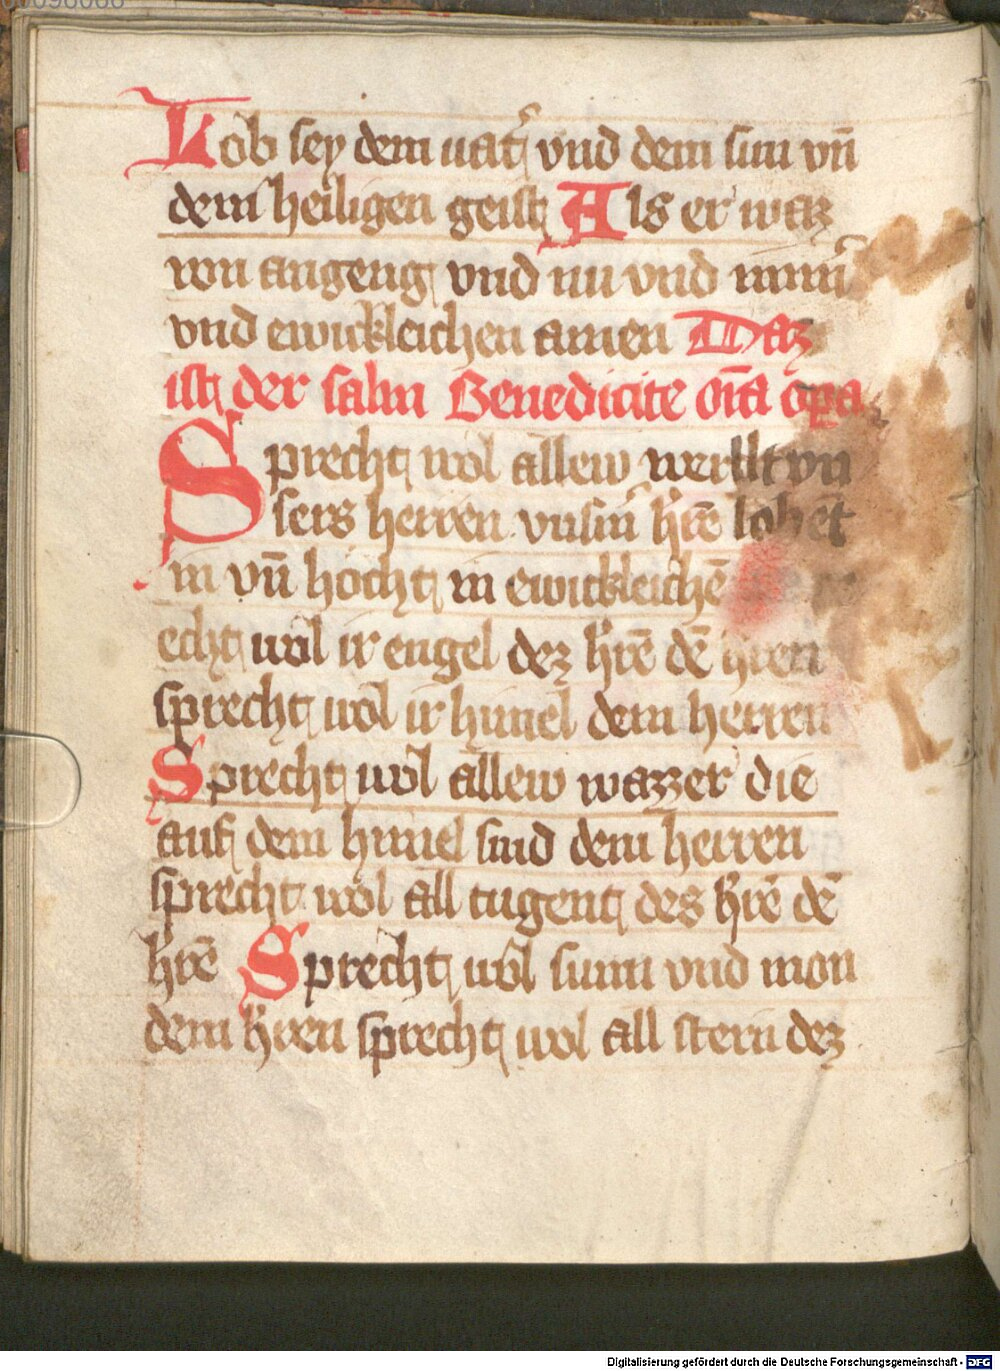 Lob sey dem uat͛ vnd dem sun vn̄
dem heiligen geist Als er waz
von angeng vnd nu vnd nim͛
vnd ewickleichen amen Daz
ist der salm Benedicite oīa oꝑa
Sprecht wol allew werllt vn
sers herren vnsm̄ hr̄e lobēt
in vn̄ hocht in ewickleichē
echt wol ir engel dez hr̄e dē hren
sprecht wol ir himel dem herren
Sprecht wol allew wazzer die
auf dem himel sind dem herren
sprecht wol all tugent des hr̄e dē
hr̄e Sprecht wol sunn vnd mon
dem hren sprecht wol all stern dez
Digitalisierung gefördert durch die Deutsche Forschungsgemeinschaft - DFG